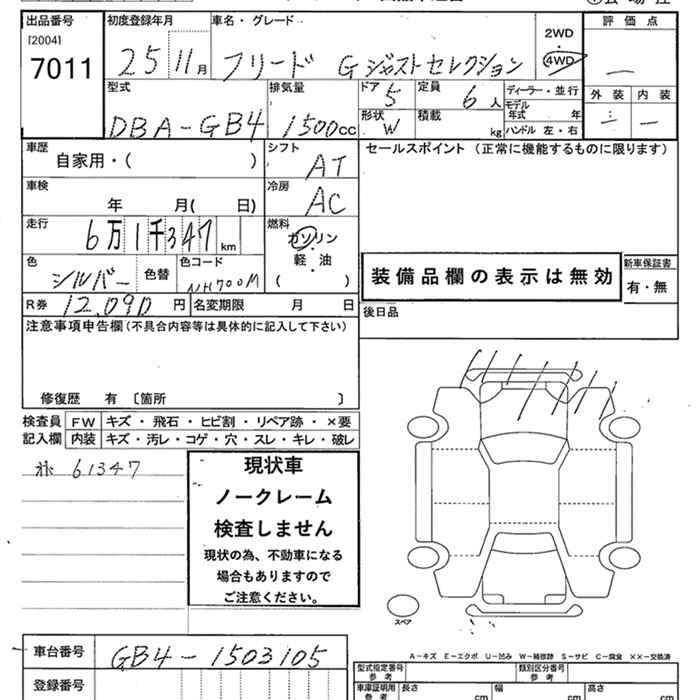 出品番号 初度登録年月 車名・グレード 評価点
[2004]
7011
25 11月 フリード Gジャストセレクション 2WD
4WD
外装 内装
型式 排気量 ドア 5 定員 6人 ディーラー・並行
モデル年式 年
DBA-GB4 1500cc 形状 W 積載 kg ハンドル 左・右
車歴 シフト セールスポイント (正常に機能するものに限ります)
自家用・( ) AT
車検 冷房
年 月( 日) AC
走行 燃料
6万1千347km ガソリン
軽・油
( )
色 色替 色コード
シルバー NH700M
装備品欄の表示は無効 新車保証書
有・無
R券 12,090円 名変期限 月 日 後日品
注意事項申告欄(不具合内容等は具体的に記入して下さい)
修復歴 有 〔箇所 〕
検査員 FW キズ・飛石・ヒビ割・リペア跡・×要
記入欄 内装 キズ・汚レ・コゲ・穴・スレ・キレ・破レ
61347
現状車
ノークレーム
検査しません
現状の為、不動車になる
場合もありますので
ご注意ください。
スペア
A-キズ E-エクボ U-凹み W-補修跡 S-サビ C-腐食 XX-交換済
車台番号 GB4-1503105
型式指定番号 参考 類別区分番号 参考
登録番号 車庫証明用 参考 長さ cm 幅 cm 高さ cm